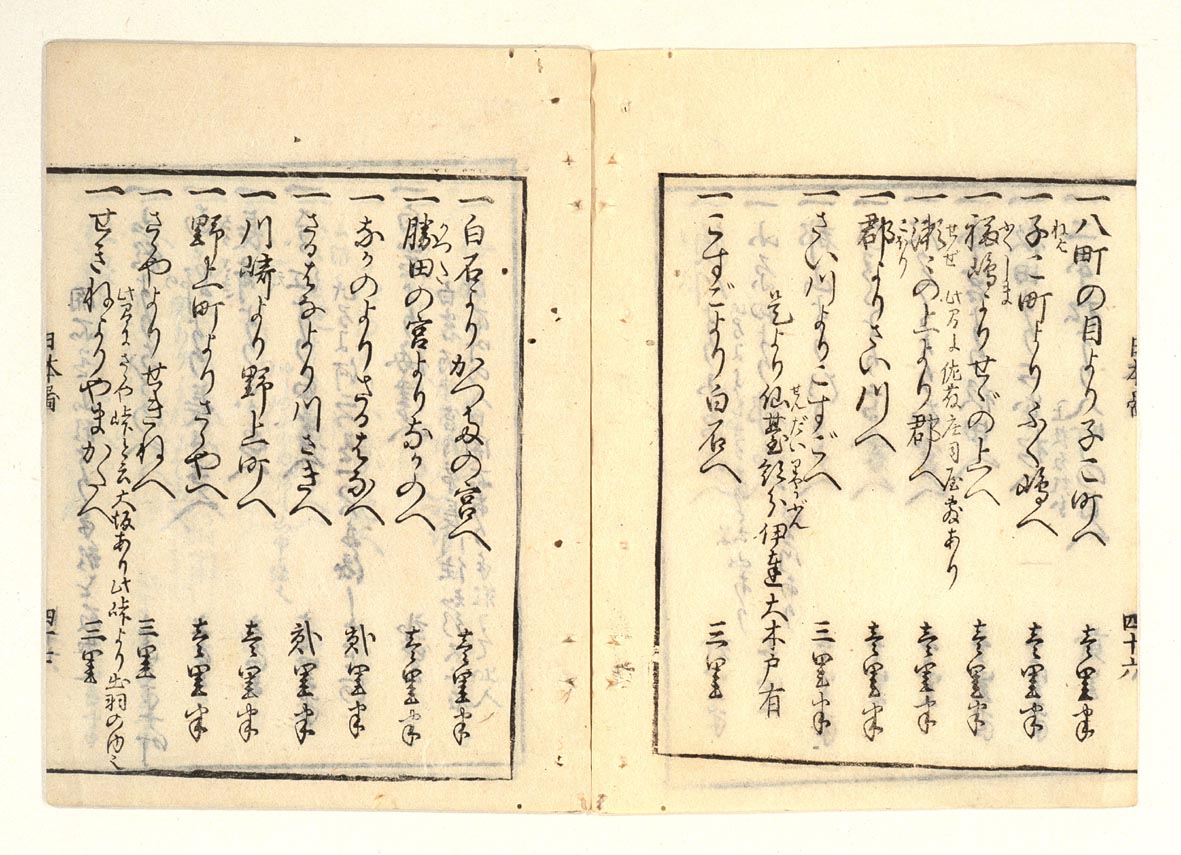 一八町の目より子こ町へ 壱里半
一子こ町よりふく嶋へ 壱里半
一福嶋よりせいの上へ 壱里半
此間に佐藤庄司屋敷あり
一瀬の上より郡へ 壱里半
一郡よりさい川へ 壱里半
一さい川よりこすごへ 三里半
是より仙臺領分伊達大木戸有
一こすごより白石へ 三里
四十六
一白石よりかつたの宮へ 壱里半
一勝田の宮よりながのへ 壱里半
一ながのよりさるはなへ 弐里半
一さるはなより川さきへ 弐里半
一川崎より野上町へ 壱里半
一野上町よりさゝやへ 壱里半
一さゝやよりせきねへ 三里
此間にさゝや峠と云大坂あり此峠より出羽の内也
一せきねよりやまかたへ 三里
日本圖